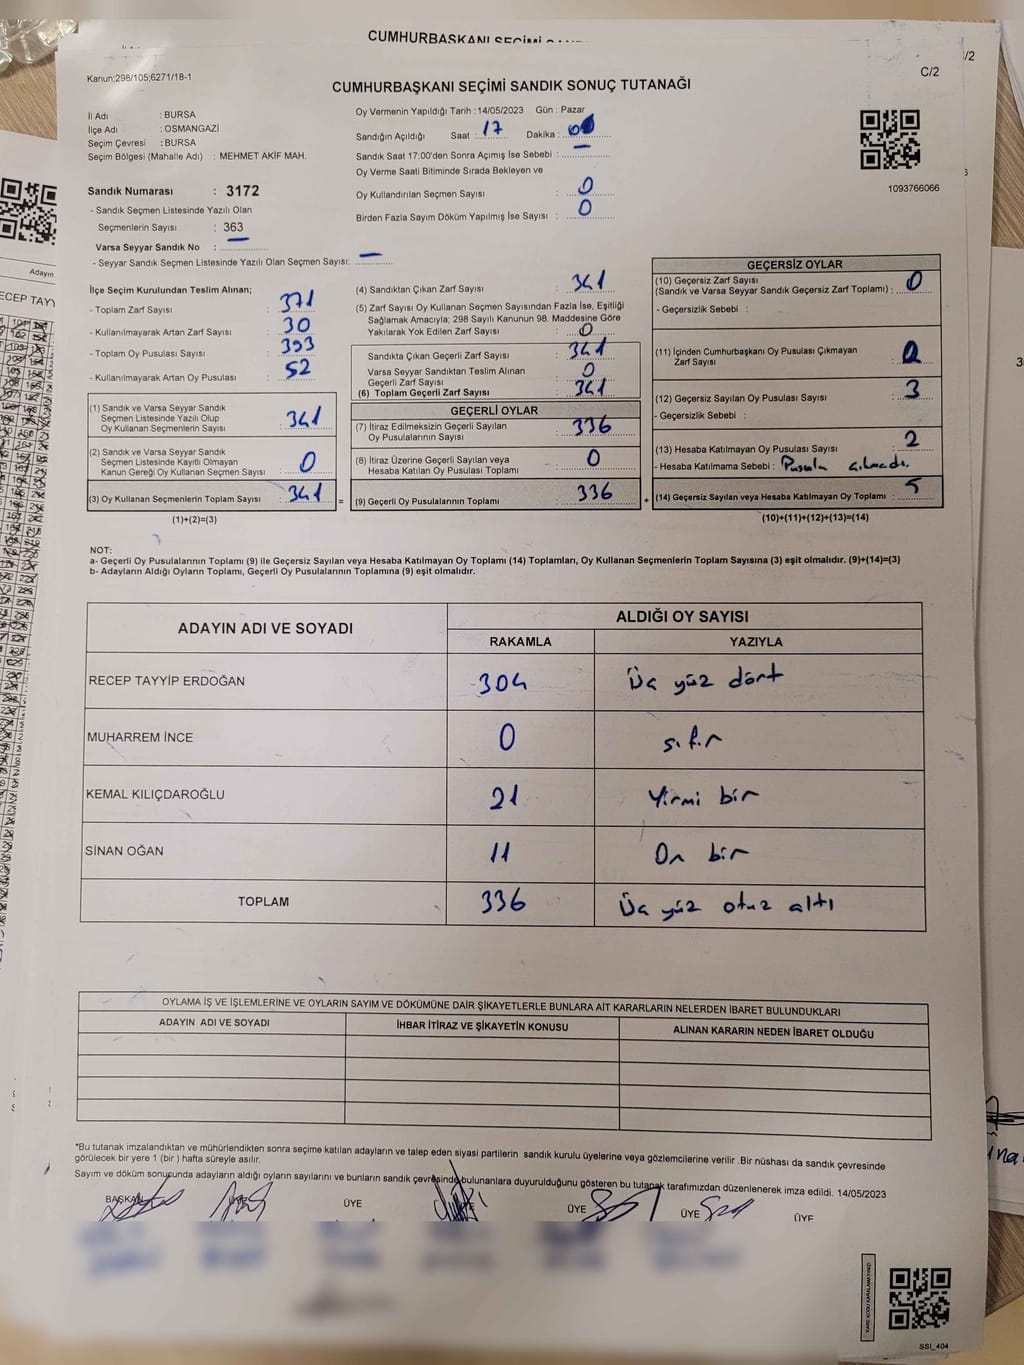 CUMHURBAŞKANI SEÇİMİ
C/2
Kanun;298/105;6271/18-1
CUMHURBAŞKANI SEÇİMİ SANDIK SONUÇ TUTANAĞI
İl Adı : BURSA
İlçe Adı : OSMANGAZİ
Seçim Çevresi : BURSA
Seçim Bölgesi (Mahalle Adı) : MEHMET AKİF MAH.
Oy Vermenin Yapıldığı Tarih :14/05/2023 Gün : Pazar
Sandığın Açıldığı Saat : 17 Dakika :
Sandık Saat 17:00'den Sonra Açımış İse Sebebi :
Oy Verme Saati Bitiminde Sırada Bekleyen ve
Oy Kullandırılan Seçmen Sayısı : 0
Birden Fazla Sayım Döküm Yapılmış İse Sayısı : 0
1093766066
Sandık Numarası : 3172
- Sandık Seçmen Listesinde Yazılı Olan
Seçmenlerin Sayısı : 363
Varsa Seyyar Sandık No : —
- Seyyar Sandık Seçmen Listesinde Yazılı Olan Seçmen Sayısı: —
İlçe Seçim Kurulundan Teslim Alınan;
- Toplam Zarf Sayısı : 371
- Kullanılmayarak Artan Zarf Sayısı : 30
- Toplam Oy Pusulası Sayısı : 393
- Kullanılmayarak Artan Oy Pusulası : 52
(1) Sandık ve Varsa Seyyar Sandık
Seçmen Listesinde Yazılı Olup
Oy Kullanan Seçmenlerin Sayısı : 341
(2) Sandık ve Varsa Seyyar Sandık
Seçmen Listesinde Kayıtlı Olmayan
Kanun Gereği Oy Kullanan Seçmen Sayısı : 0
(3) Oy Kullanan Seçmenlerin Toplam Sayısı : 341 =
(1)+(2)=(3)
(4) Sandıktan Çıkan Zarf Sayısı : 341
(5) Zarf Sayısı Oy Kullanan Seçmen Sayısından Fazla İse, Eşitliği
Sağlamak Amacıyla; 298 Sayılı Kanunun 98. Maddesine Göre
Yakılarak Yok Edilen Zarf Sayısı : 0
Sandıkta Çıkan Geçerli Zarf Sayısı : 341
Varsa Seyyar Sandıktan Teslim Alınan
Geçerli Zarf Sayısı : 0
(6) Toplam Geçerli Zarf Sayısı : 341
GEÇERLİ OYLAR
(7) İtiraz Edilmeksizin Geçerli Sayılan
Oy Pusulalarının Sayısı : 336
(8) İtiraz Üzerine Geçerli Sayılan veya
Hesaba Katılan Oy Pusulası Toplamı : 0
(9) Geçerli Oy Pusulalarının Toplamı : 336 +
GEÇERSİZ OYLAR
(10) Geçersiz Zarf Sayısı
(Sandık ve Varsa Seyyar Sandık Geçersiz Zarf Toplamı) : 0
- Geçersizlik Sebebi :
(11) İçinden Cumhurbaşkanı Oy Pusulası Çıkmayan
Zarf Sayısı : 0
(12) Geçersiz Sayılan Oy Pusulası Sayısı : 3
- Geçersizlik Sebebi :
(13) Hesaba Katılmayan Oy Pusulası Sayısı : 2
- Hesaba Katılmama Sebebi : Pusula çıkmadı.
(14) Geçersiz Sayılan veya Hesaba Katılmayan Oy Toplamı : 5
(10)+(11)+(12)+(13)=(14)
NOT:
a- Geçerli Oy Pusulalarının Toplamı (9) ile Geçersiz Sayılan veya Hesaba Katılmayan Oy Toplamı (14) Toplamları, Oy Kullanan Seçmenlerin Toplam Sayısına (3) eşit olmalıdır. (9)+(14)=(3)
b- Adayların Aldığı Oyların Toplamı, Geçerli Oy Pusulalarının Toplamına (9) eşit olmalıdır.
ADAYIN ADI VE SOYADI ALDIĞI OY SAYISI
RAKAMLA YAZIYLA
RECEP TAYYİP ERDOĞAN 304 Üç yüz dört
MUHARREM İNCE 0 sıfır
KEMAL KILIÇDAROĞLU 21 Yirmi bir
SİNAN OĞAN 11 On bir
TOPLAM 336 Üç yüz otuz altı
OYLAMA İŞ VE İŞLEMLERİNE VE OYLARIN SAYIM VE DÖKÜMÜNE DAİR ŞİKAYETLERLE BUNLARA AİT KARARLARIN NELERDEN İBARET BULUNDUKLARI
ADAYIN ADI VE SOYADI İHBAR İTİRAZ VE ŞİKAYETİN KONUSU ALINAN KARARIN NEDEN İBARET OLDUĞU
*Bu tutanak imzalandıktan ve mühürlendikten sonra seçime katılan adayların ve talep eden siyasi partilerin sandık kurulu üyelerine veya gözlemcilerine verilir .Bir nüshası da sandık çevresinde
görülecek bir yere 1 (bir ) hafta süreyle asılır.
Sayım ve döküm sonucunda adayların aldığı oyların sayılarını ve bunların sandık çevresinde bulunanlara duyurulduğunu gösteren bu tutanak tarafımızdan düzenlenerek imza edildi. 14/05/2023
BAŞKAN ÜYE ÜYE ÜYE ÜYE
SSI_404